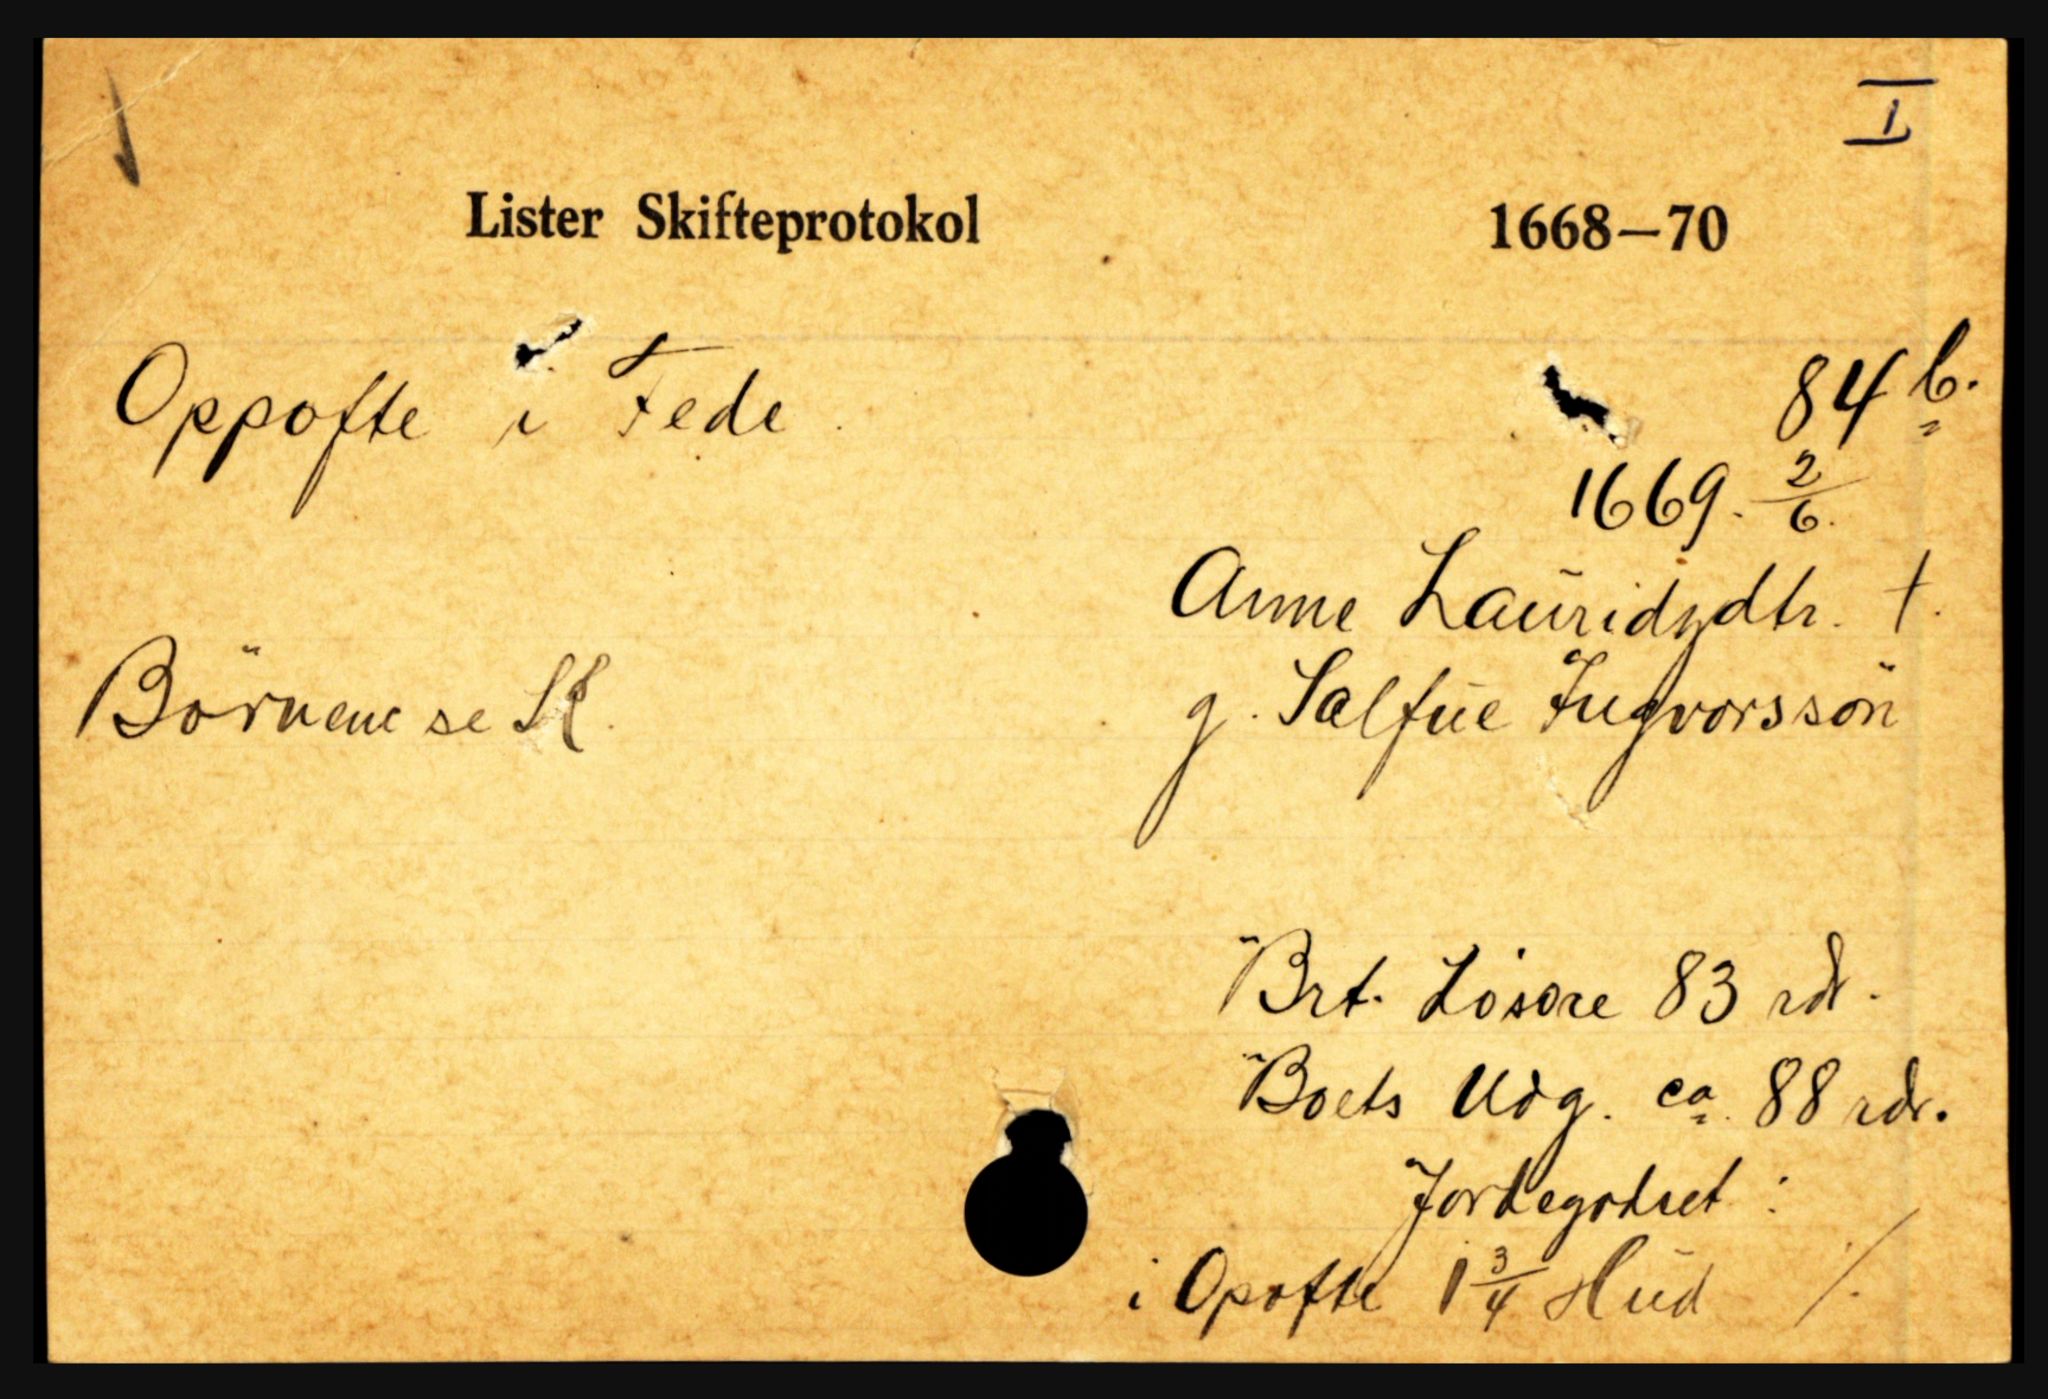 I
Lister Skifteprotokol 1668—70
Oppofte i Fede. 84 b.
1669. 2/6.
Anne Lauridsdtr. †.
Börnene se SK. g. Salfue Ingvorssön
Brt. Lösöre 83 rdr.
Boets Udg. ca. 88 rdr.
Jordegodset :
i Opofte 1 3/4 Hud ·/.